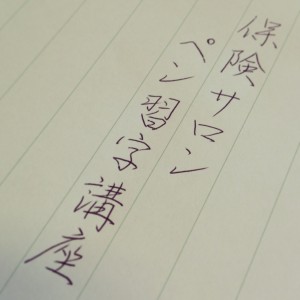 保険サロン
ペン習字講座